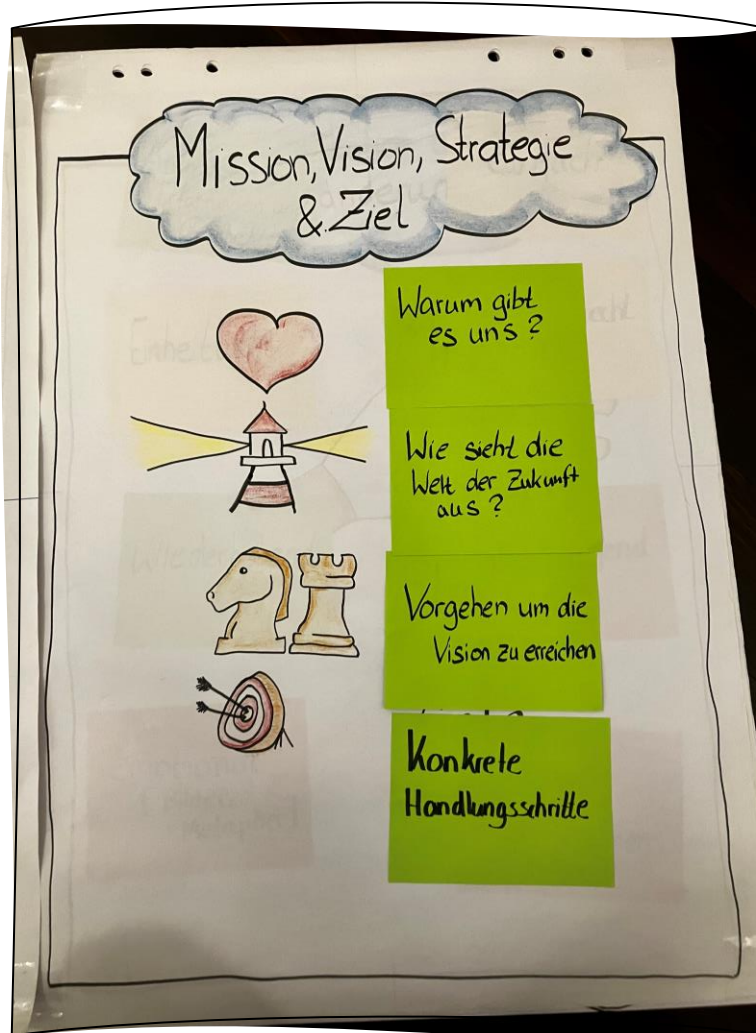 Mission, Vision, Strategie
& Ziel
Warum gibt
es uns?
Wie sieht die
Welt der Zukunft
aus?
Vorgehen um die
Vision zu erreichen
Konkrete
Handlungsschritte